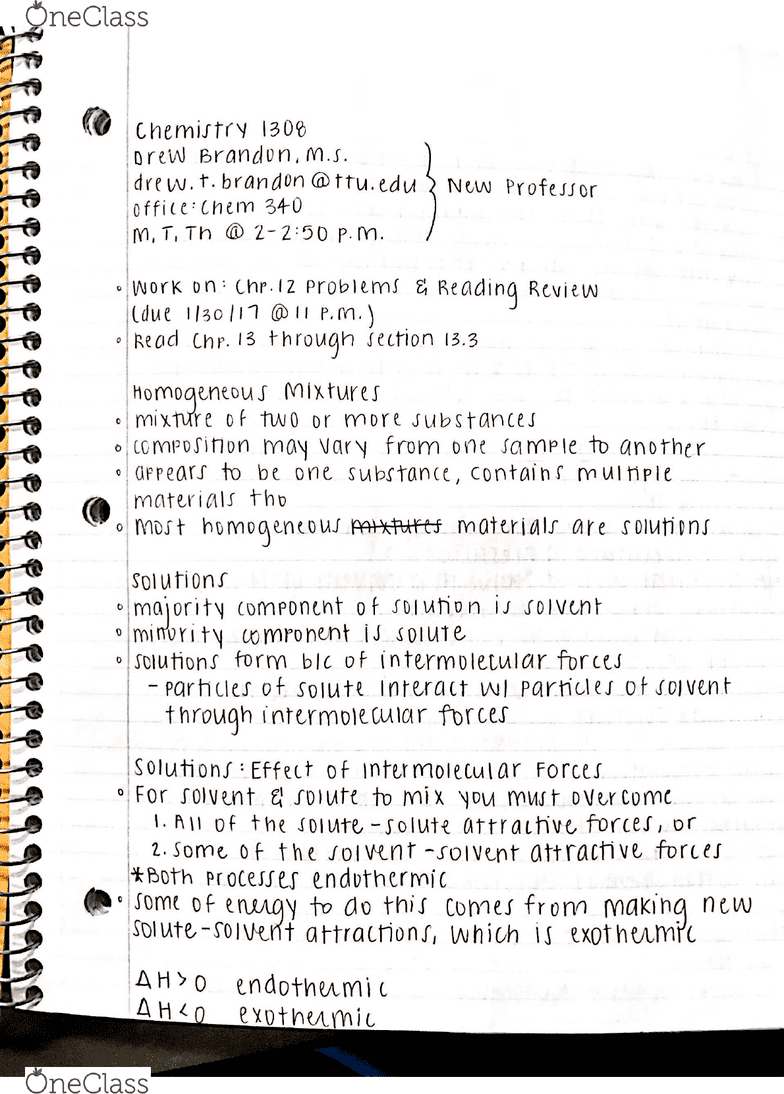 OneClass
Chemistry 1308
Drew Brandon, M.S.
drew.t.brandon@ttu.edu } New Professor
office: Chem 340
M, T, Th @ 2-2:50 P.M.
◦ Work on: Chp. 12 Problems & Reading Review
(due 1/30/17 @ 11 P.M.)
◦ Read Chp. 13 through section 13.3
Homogeneous Mixtures
◦ mixture of two or more substances
◦ composition may vary from one sample to another
◦ appears to be one substance, contains multiple
materials tho
◦ most homogeneous mixtures materials are solutions
Solutions
◦ majority component of solution is solvent
◦ minority component is solute
◦ solutions form b/c of intermolecular forces
- particles of solute interact w/ particles of solvent
through intermolecular forces
Solutions: Effect of Intermolecular Forces
◦ For solvent & solute to mix you must overcome
1. All of the solute-solute attractive forces, or
2. Some of the solvent-solvent attractive forces
*Both processes endothermic
◦ some of energy to do this comes from making new
solute-solvent attractions, which is exothermic
ΔH>0 endothermic
ΔH<0 exothermic
OneClass